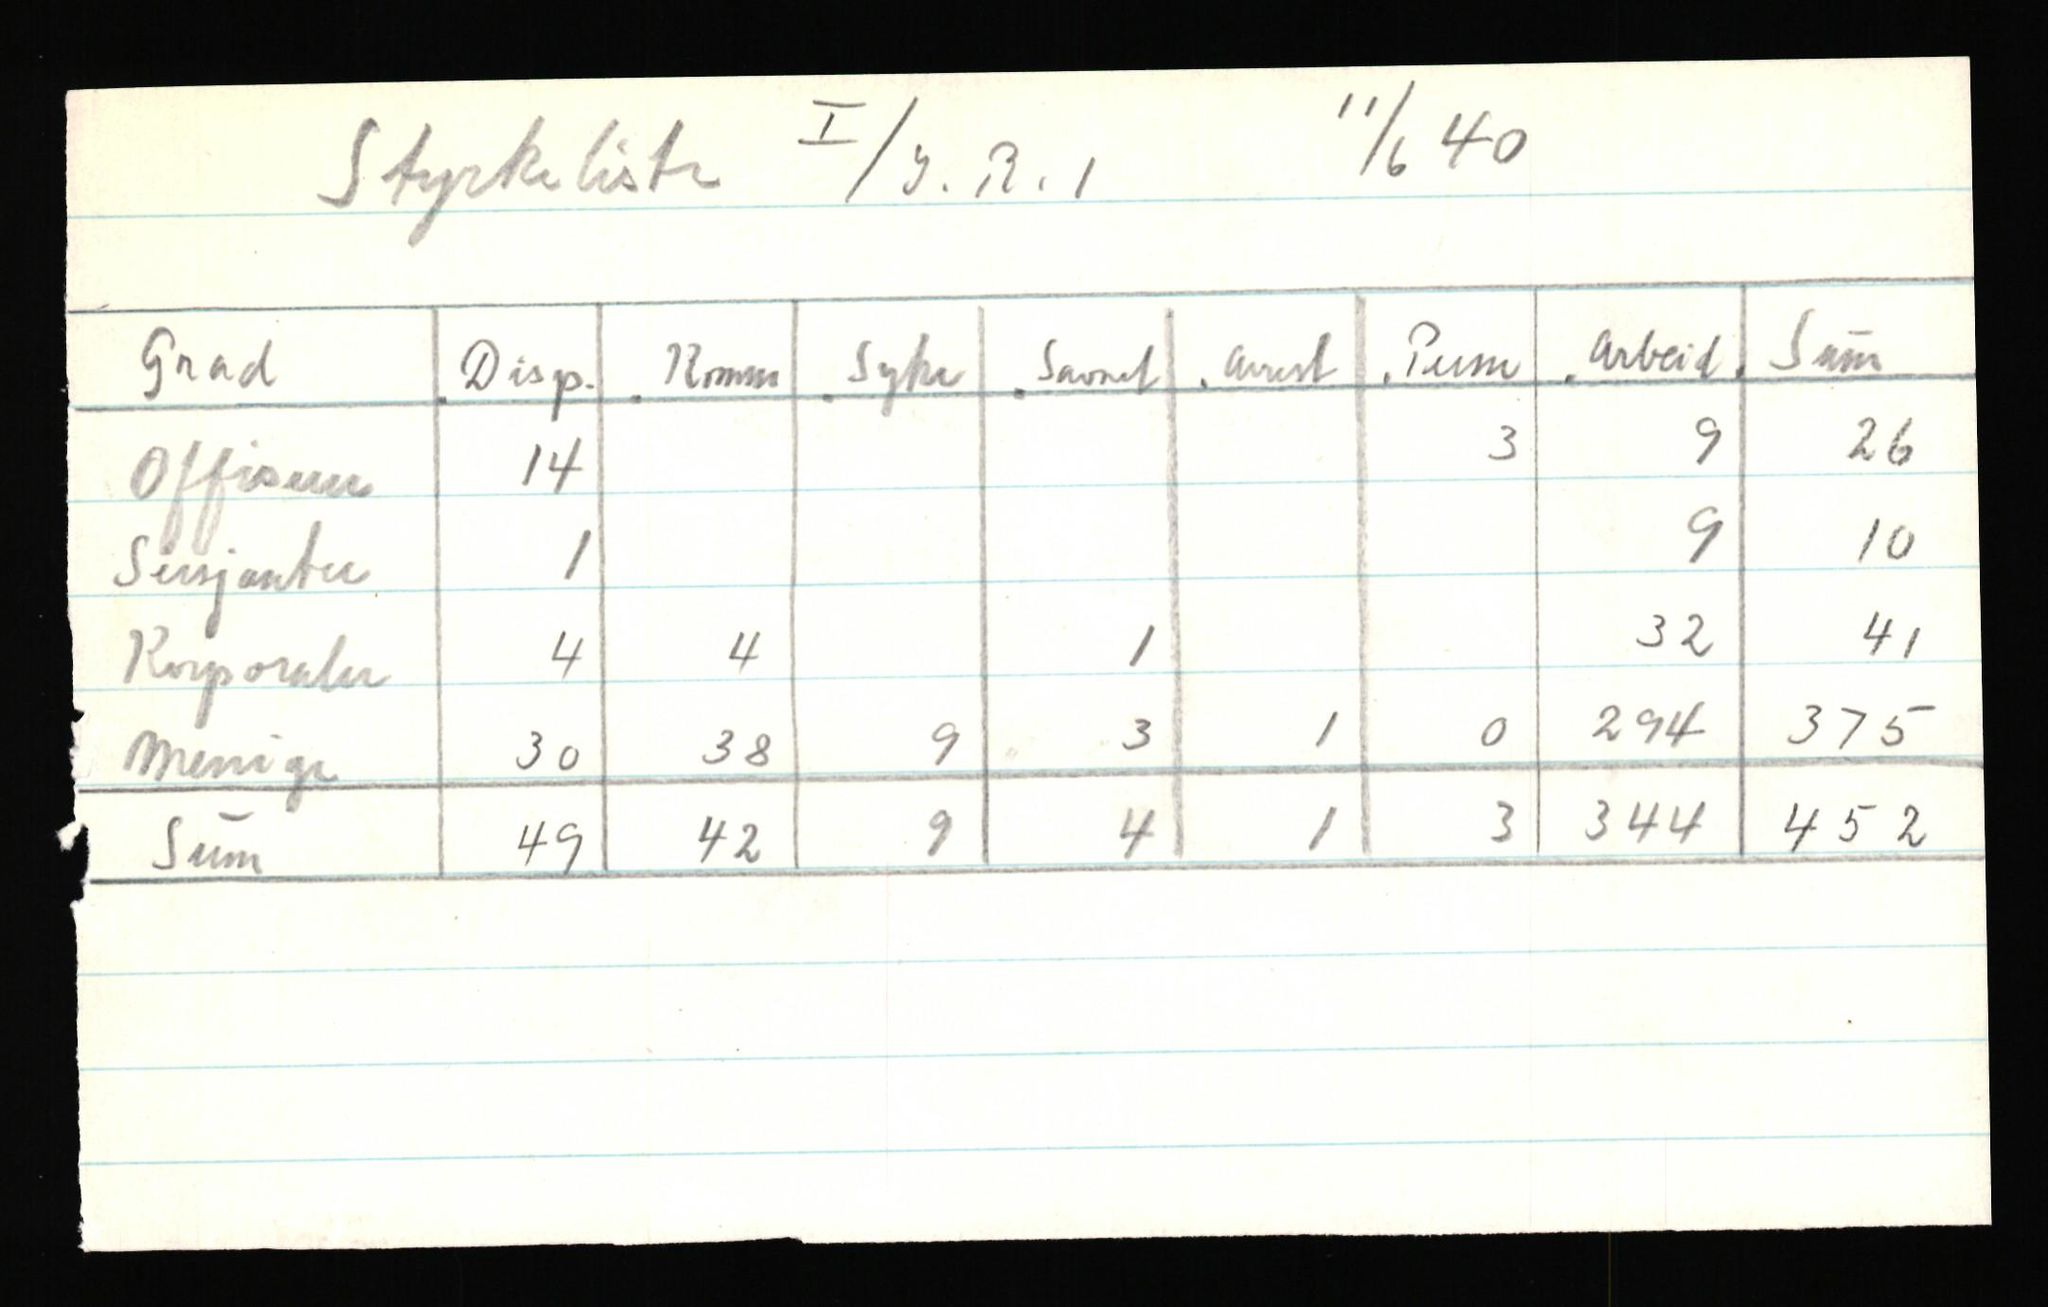 Styrkeliste I/J.R.1 11/6 40
Grad Disp. Komm Syke Savnet Arrest Perm Arbeid Sum
Offiserer 14 3 9 26
Sersjanter 1 9 10
Korporaler 4 4 1 32 41
Menige 30 38 9 3 1 0 294 375
Sum 49 42 9 4 1 3 344 452